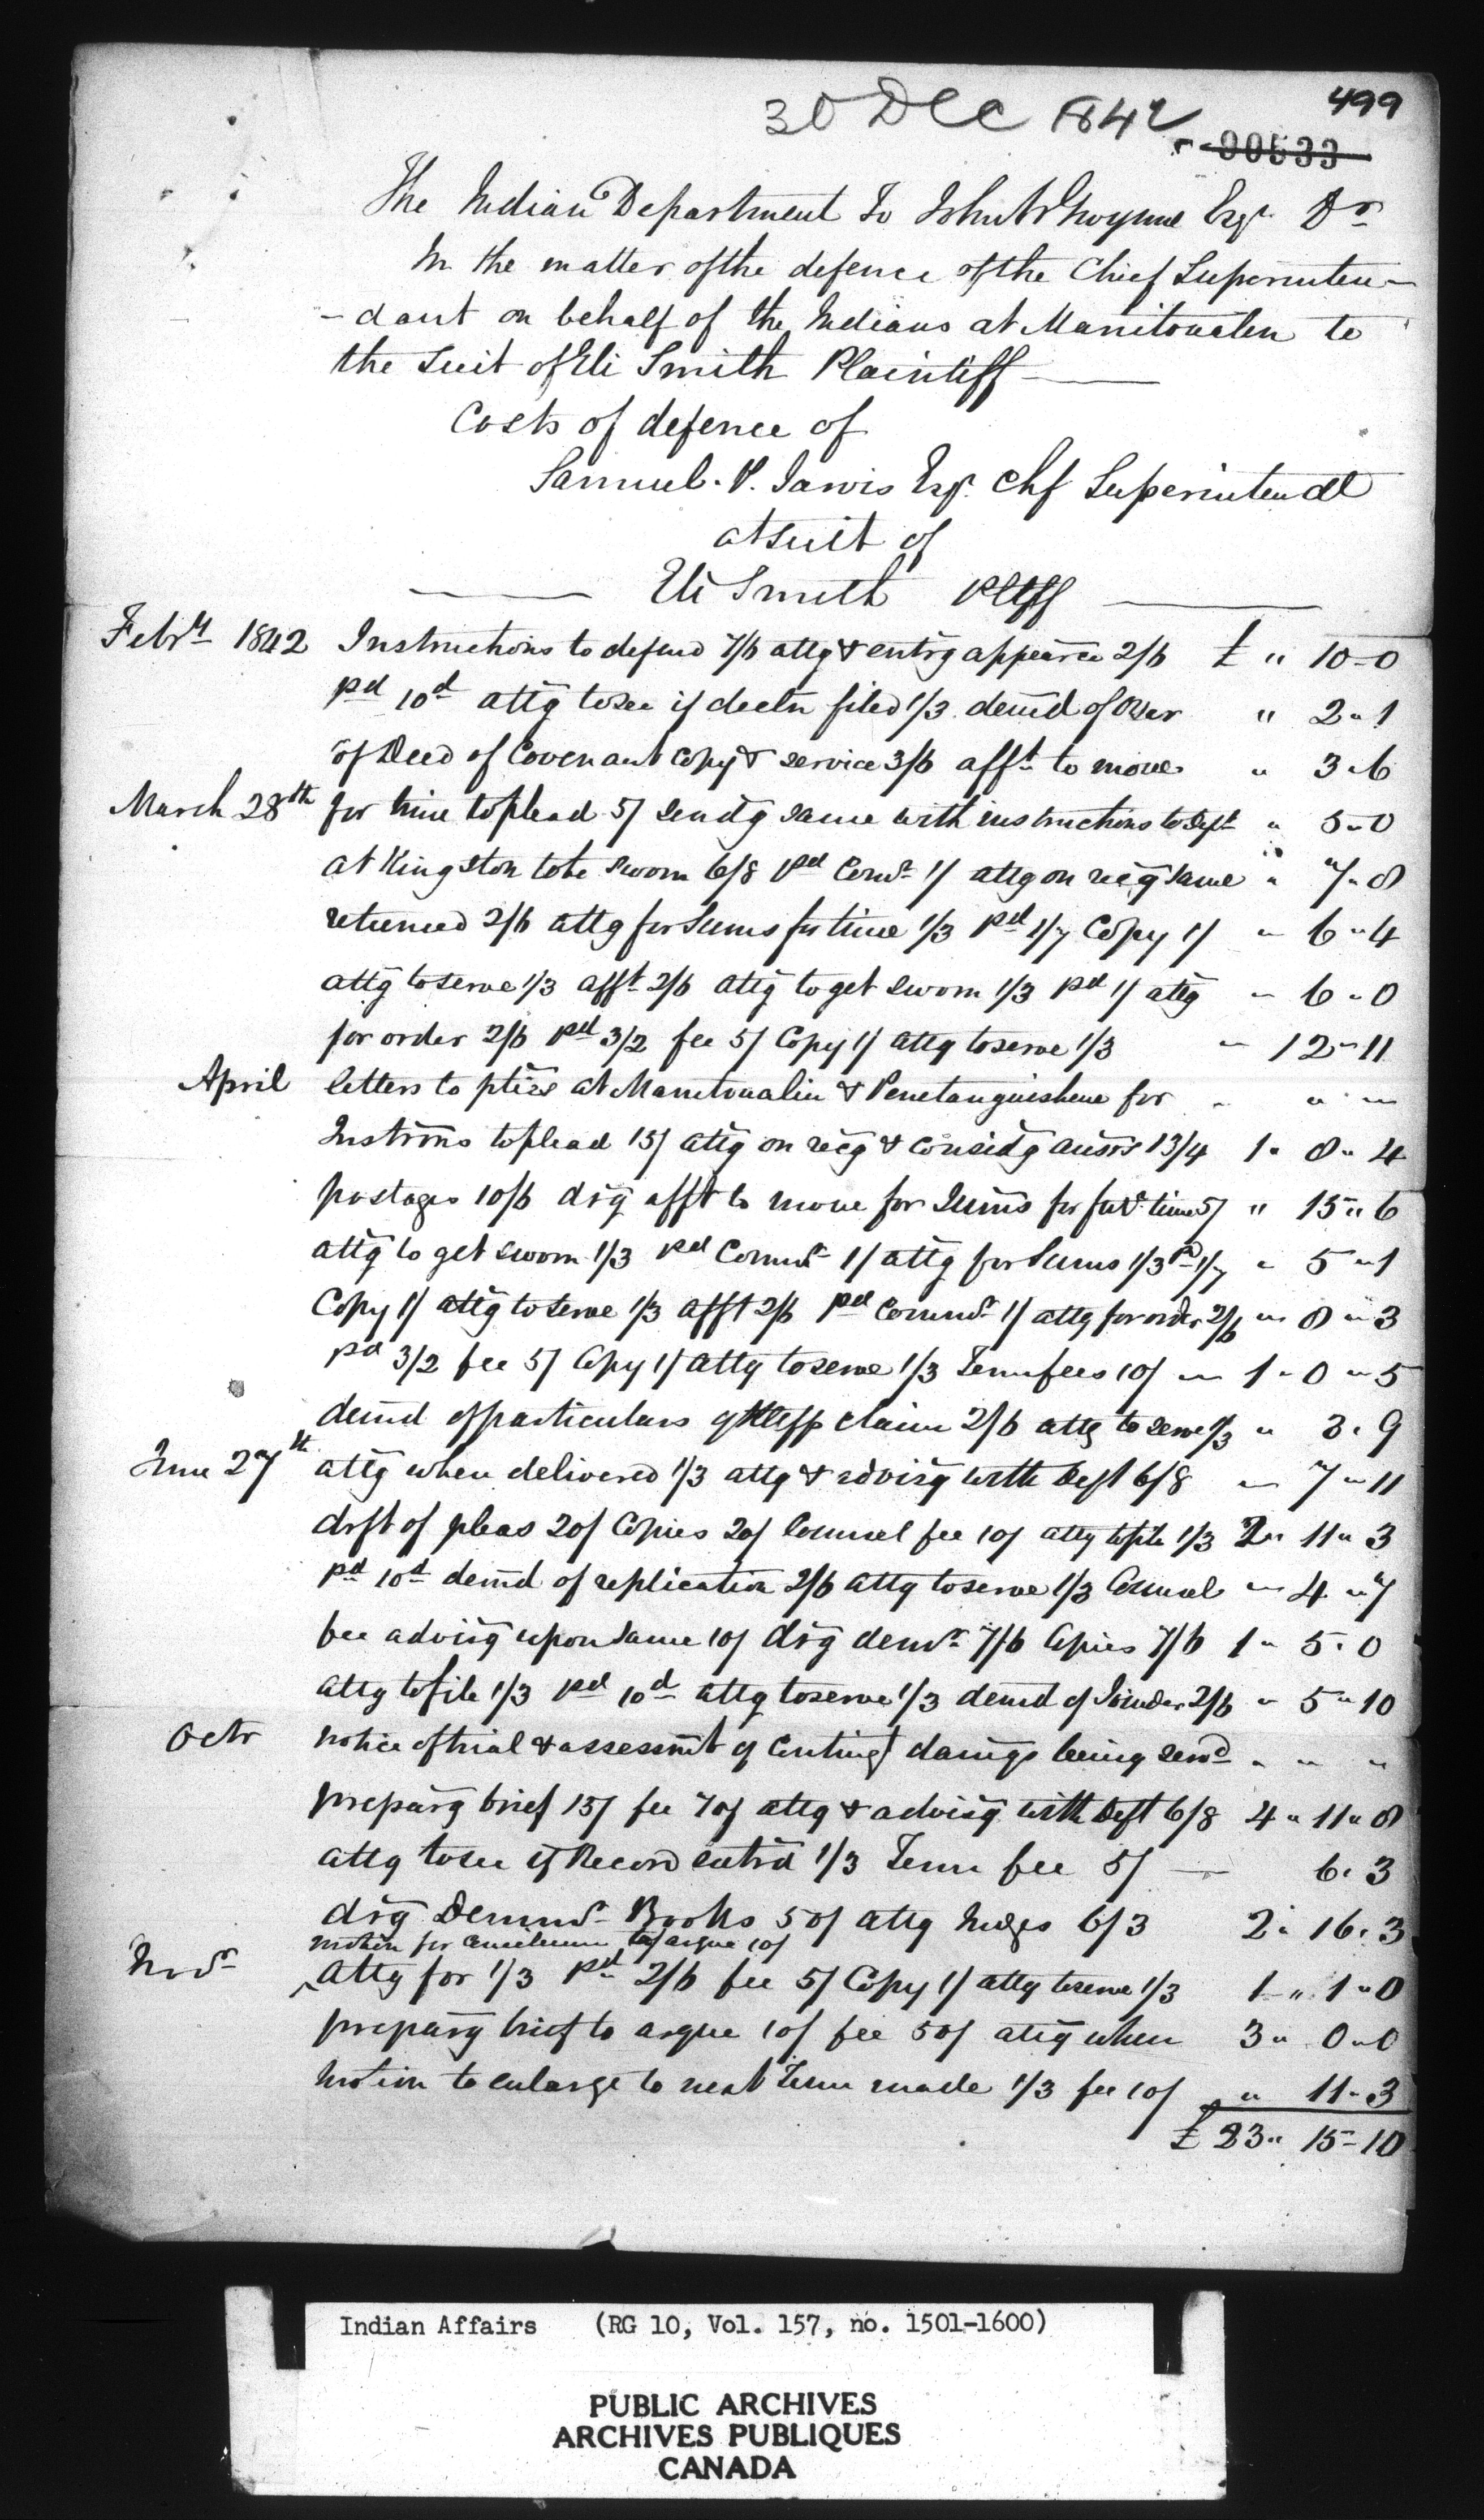 30 Dec 1842
499
00533
The Indian Department To John W Gwynne Esqr Dr
In the matter of the defence of the Chief Superinten-
-dant on behalf of the Indians at Manitoualin to
the suit of Eli Smith Plaintiff
Costs of defence of
Samuel. P. Jarvis Esqr. Chf Superintendt
at suit of
Eli Smith Pltff
Febry 1842 Instructions to defend 7/6 attg & entrg appearce 2/6 £ " 10-0
pd 10d attg to see if decln filed 1/3 demd of Oyer " 2"1
of Deed of Covenant Copy & service 3/6 afft to move " 3"6
March 28th for time to plead 5/ sendg same with instructions to Deft " 5"0
at Kingston to be sworn 6/8 pd Comr 1/ attg on recg same " 7"8
returned 2/6 attg for Sums for time 1/3 pd 1/7 Copy 1/ " 6"4
attg to serve 1/3 afft 2/6 attg to get sworn 1/3 pd 1/ attg " 6"0
for order 2/6 pd 3/2 fee 5/ Copy 1/ attg to serve 1/3 " 12"11
April letters to pties at Manitoualin & Penetanguishene for " " "
Instrons to plead 15/ attg on recg & considg ansrs 13/4 1" 8"4
postages 10/6 drg afft to move for Sums for furr time 5/ " 15"6
attg to get sworn 1/3 pd Commr 1/ attg for Sums 1/3 pd 1/7 " 5"1
Copy 1/ attg to serve 1/3 afft 2/6 pd Commr 1/ attg for order 2/6 " 8"3
pd 3/2 fee 5/ Copy 1/ attg to serve 1/3 Term fees 10/ " 1"0"5
demd of particulars of Pltffs claim 2/6 attg to serve 1/3 " 3"9
June 27th attg when delivered 1/3 attg & advisg with Deft 6/8 " 7"11
drft of pleas 20/ Copies 20/ Counsel fee 10/ attg to file 1/3 2" 11"3
pd 10d demd of replication 2/6 attg to serve 1/3 Counsel " 4"7
fee advisg upon same 10/ drg demr 7/6 Copies 7/6 1" 5"0
attg to file 1/3 pd 10d attg to serve 1/3 demd of Joinder 2/6 " 5"10
Octr notice of trial & assessmt of Contingt damgs being served " " "
preparg brief 15/ fee 70/ attg & advisg with Deft 6/8 4"11"8
attg to see if Record entrd 1/3 Term fee 5/ 6"3
drg Demurr Books 50/ attg Judges 6/3 2"16"3
motion for concilium to argue 10/
Novr attg for 1/3 pd 2/6 fee 5/ Copy 1/ attg to serve 1/3 1"1"0
preparg brief to argue 10/ fee 50/ attg when 3"0"0
motion to enlarge to next Term made 1/3 fee 10/ " 11"3
£ 23" 15-10
Indian Affairs (RG 10, Vol. 157, no. 1501-1600)
PUBLIC ARCHIVES
ARCHIVES PUBLIQUES
CANADA